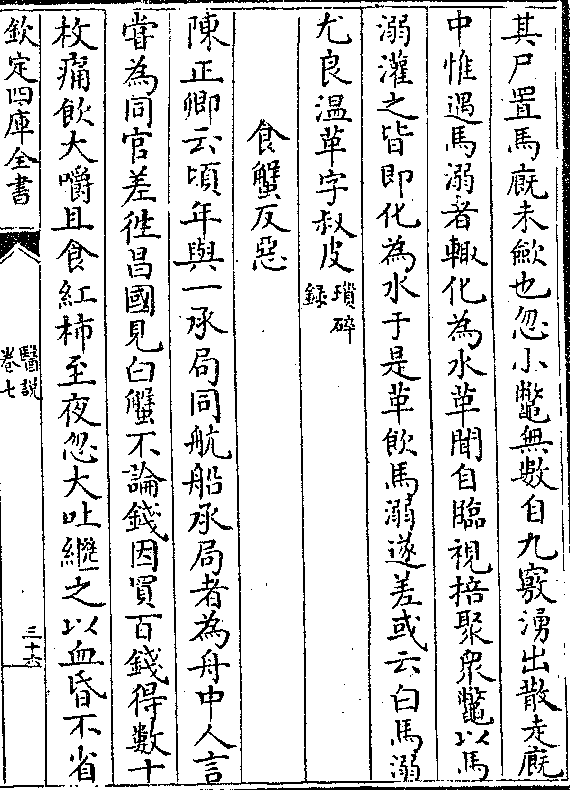 其尸置馬廐未歛也忽小鼈無數自九竅湧出散走廐
中惟遇馬溺者輙化為水革聞自臨視掊聚衆鼈以馬
溺灌之皆即化為水于是革飲馬溺遂差或云白馬溺
尤良温革字叔皮瑣碎録
食蟹反惡
陳正卿云頃年與一承局同航船承局者為舟中人言
嘗為同官差徃昌國見白蟹不論錢因買百錢得數十
枚痛飲大嚼且食紅柿至夜忽大吐繼之以血昏不省
欽定四庫全書
醫説
卷七
三十六